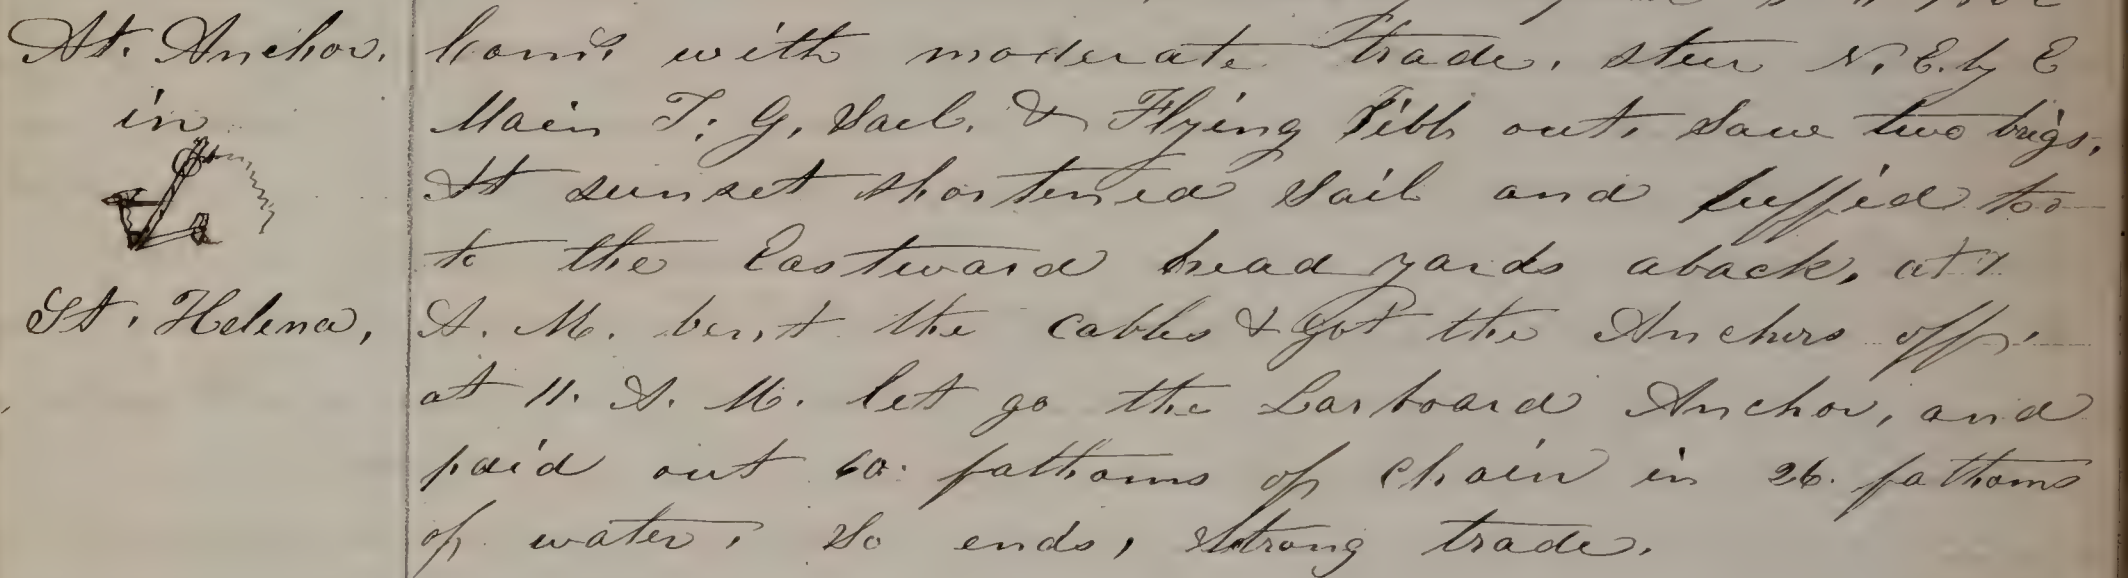 At. Anchor.
in
St. Helena,
Coms with moderate trade, steer N. E. by E
Main T. G. Sail. & Flying Jibb out, Saw two brigs,
At sunset shortened Sail and luffed too
to the Eastward head yards aback, at 7
A. M. bent the cables & got the Anchors off,
at 11. A. M. let go the Larboard Anchor, and
paid out 60. fathoms of Chain in 26. fathoms
of water, So ends, Strong trade.